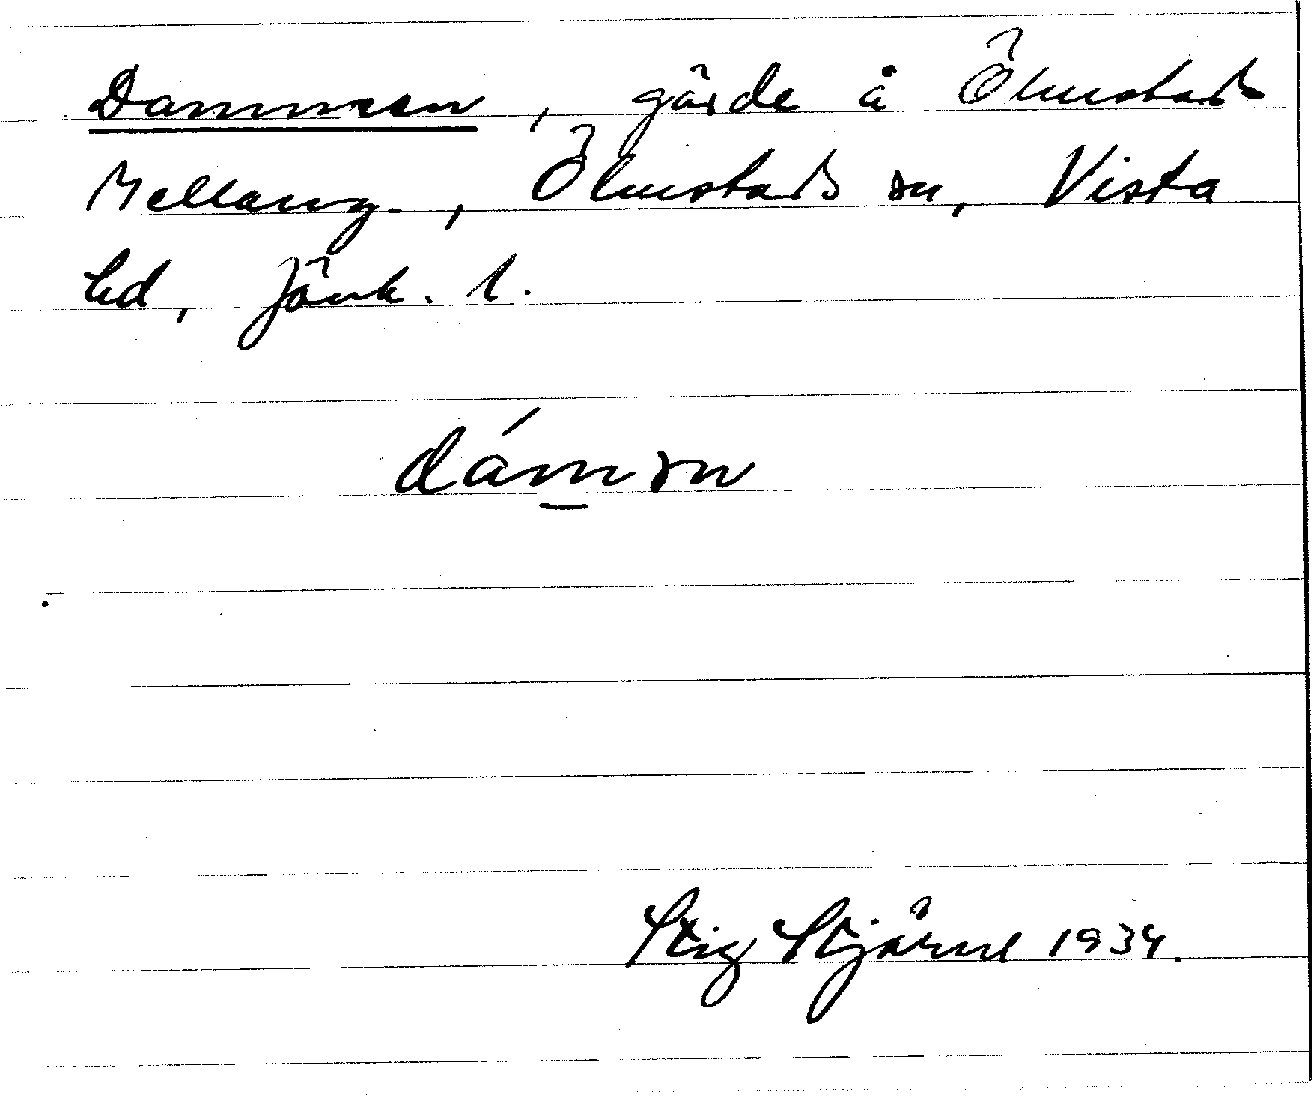 Dammen, gärde å Ölmstads
Mellang., Ölmstads sn, Vista
hd, Jönk. l.
dám̲ən
Stig Stjärne 1934.